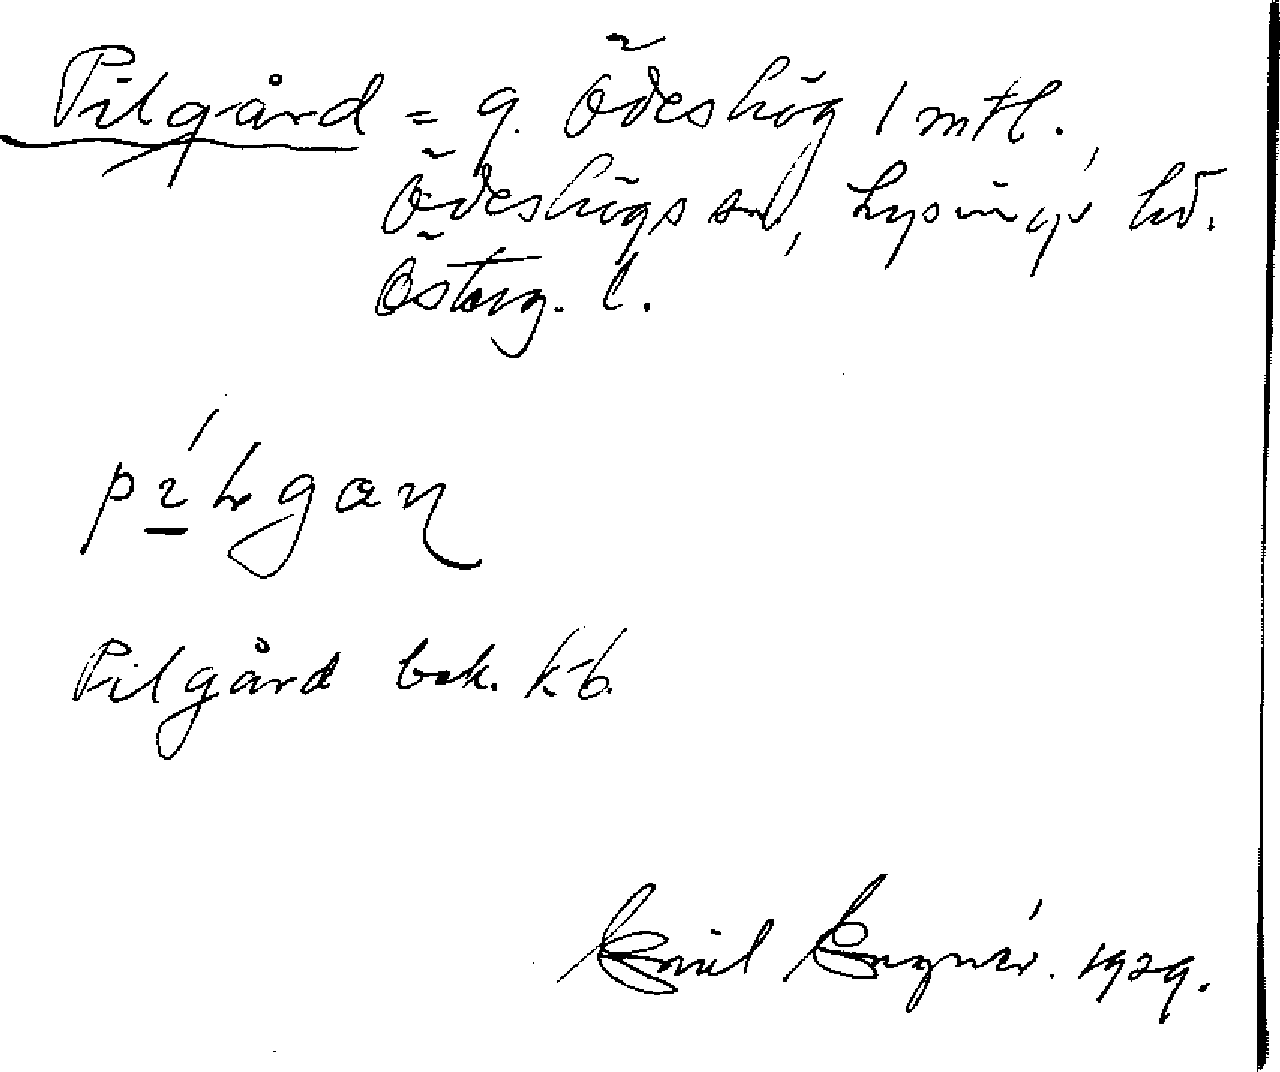 Pilgård = g. Ödeshög 1 mtl.
Ödeshögs sn, Lysings hd.
Österg. l.
Pilgård bek. kb.
Emil 1929.